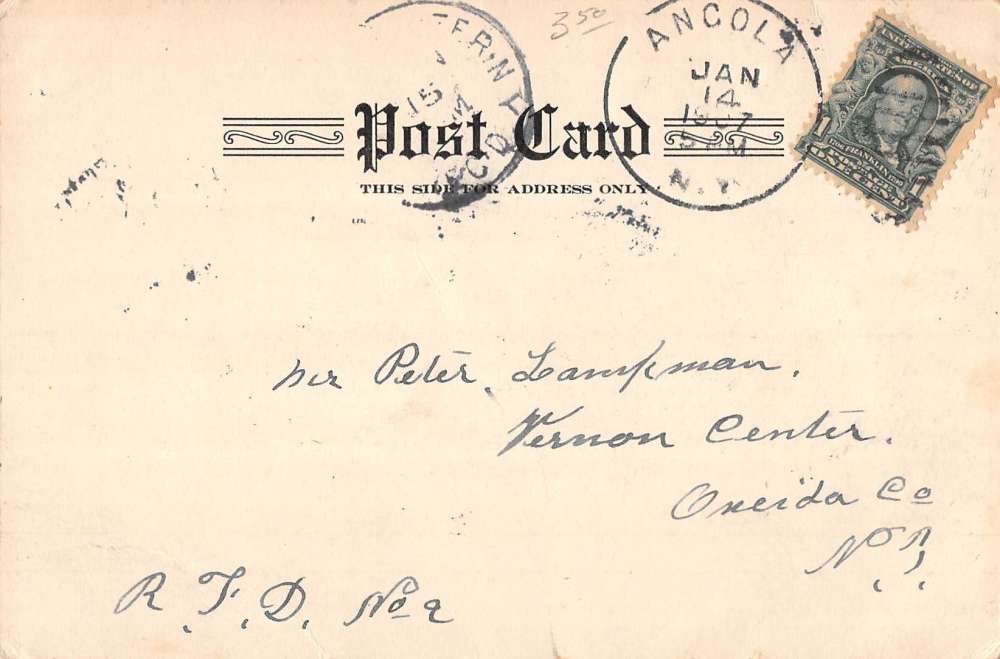 3.50
ANGOLA
JAN
14
1907
5 PM
N.Y.
15
REC'D
UNITED STATES OF
AMERICA
1 FRANKLIN 1
ONE CENT
Post Card
THIS SIDE FOR ADDRESS ONLY.
Mr Peter Lampman.
Vernon Center.
Oneida Co
N.Y.
R.F.D. No 2